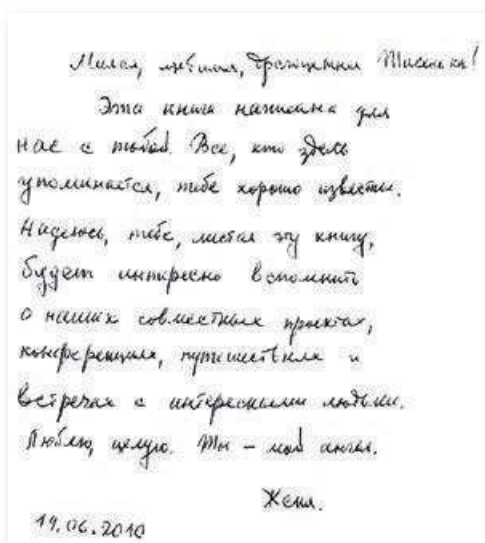 Милая, любимая, драгоценная Тисенька!
Эта книга написана для
нас с тобой. Все, кто здесь
упоминается, тебе хорошо известны.
Надеюсь, тебе, листая эту книгу,
будет интересно вспомнить
о наших совместных проектах,
конференциях, путешествиях и
встречах с интересными людьми.
Люблю, целую. Ты – мой ангел.
Женя.
19.06.2010